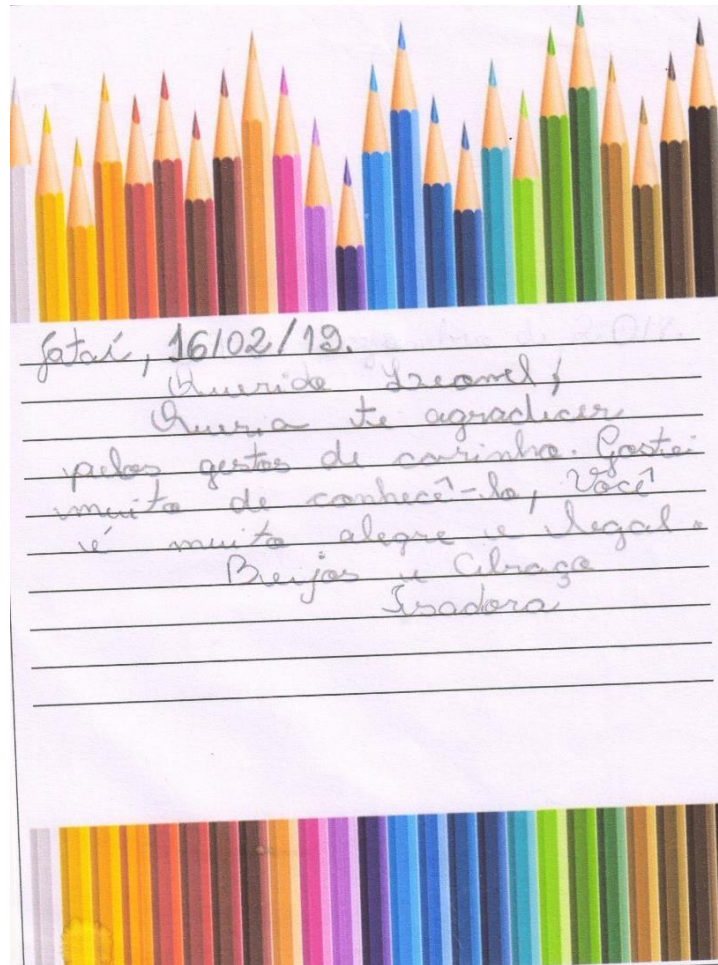 Jataí, 16/02/19.
Querido Leonel,
Queria te agradecer
pelos gestos de carinho. Gostei
muito de conhecê-lo, Você
é muito alegre e legal.
Beijos e Abraço
Isadora